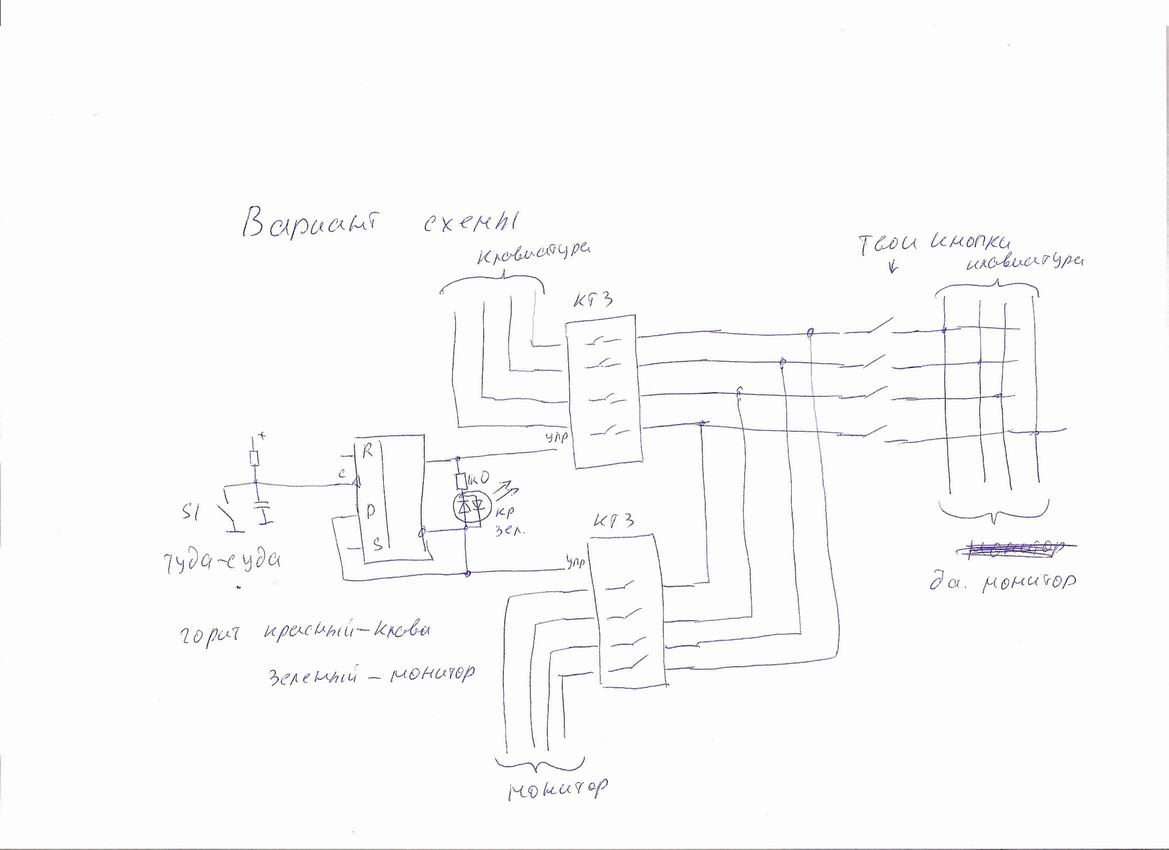 Вариант схемы
Клавиатура
Твои кнопки
клавиатура
КТ3
упр
+
R
C
D
S
1к0
кр
зел.
S1
туда-сюда
КТ3
упр
да. монитор
горит красный - клава
зеленый - монитор
монитор